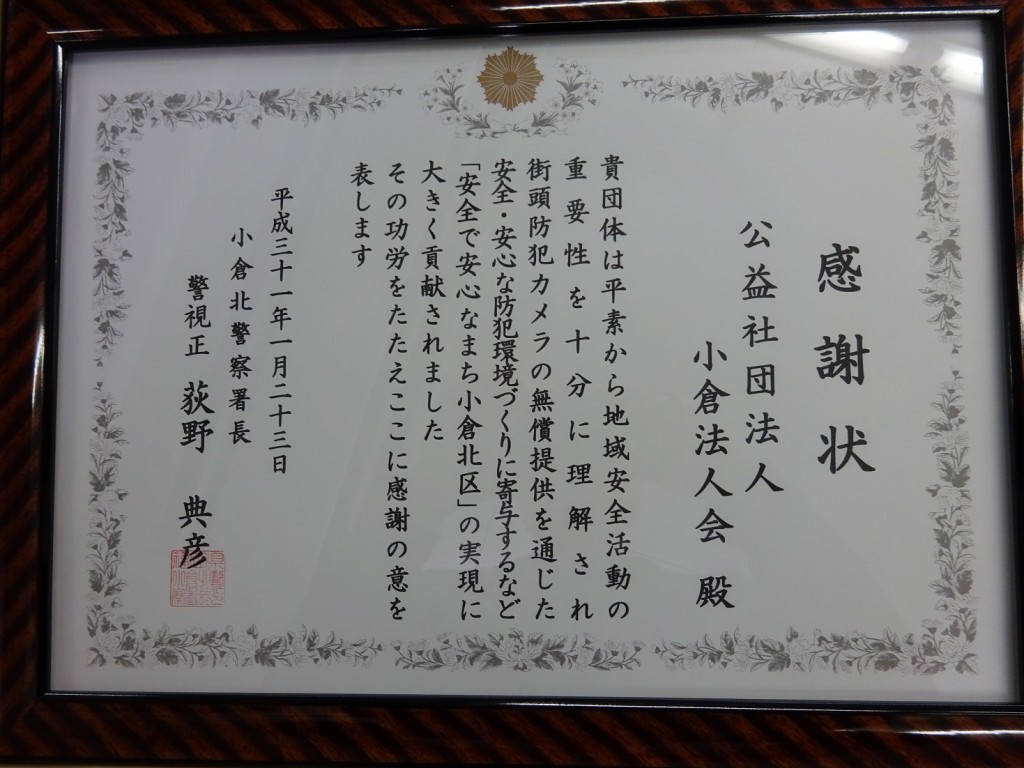 感謝状
公益社団法人
小倉法人会 殿
貴団体は平素から地域安全活動の
重要性を十分に理解され
街頭防犯カメラの無償提供を通じた
安全・安心な防犯環境づくりに寄与するなど
「安全で安心なまち小倉北区」の実現に
大きく貢献されました
その功労をたたえここに感謝の意を
表します
平成三十一年一月二十三日
小倉北警察署長
警視正 荻野 典彦